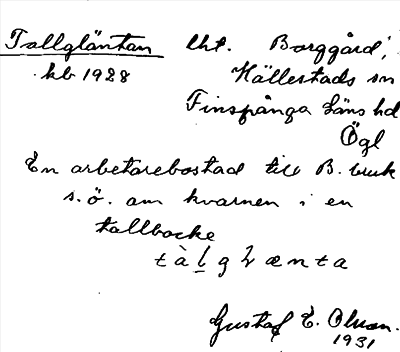 Tallgläntan lht. Borggård,
kb 1928 Hällestads sn
Finspånga läns hd
Ögl
En arbetarebostad till B. bruk
s.ö. om kvarnen i en
tallbacke
tàlglænta
Gustaf E. Olsson.
1931